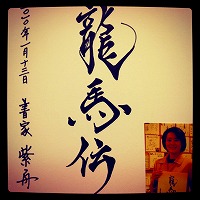 龍馬伝
二〇一〇年一月十三日
書家 紫舟